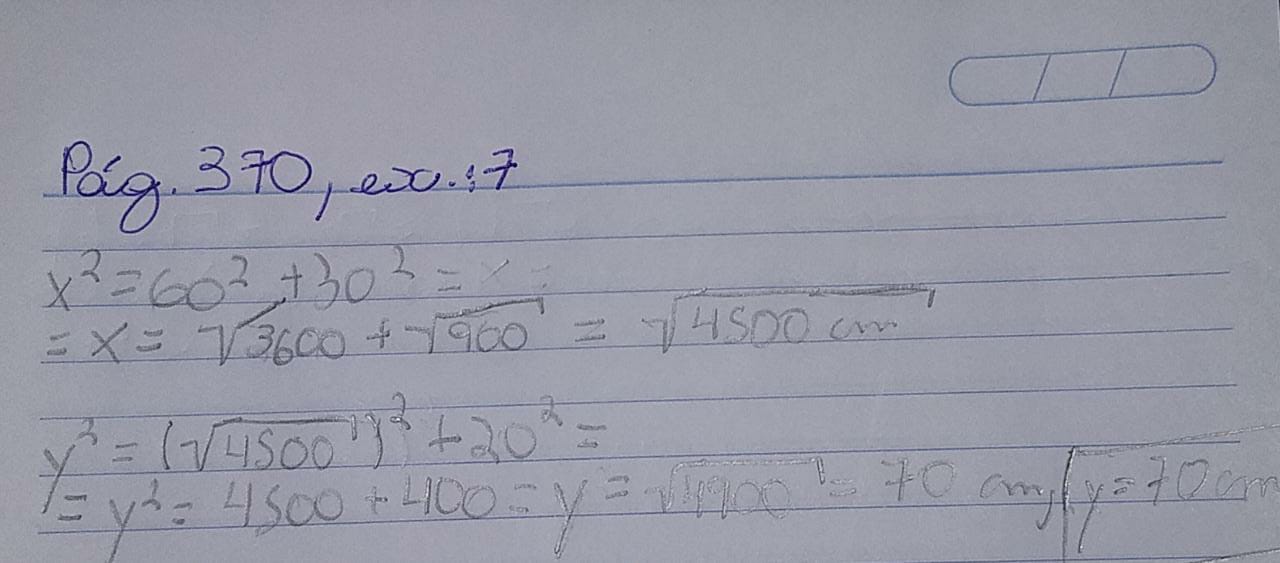 Pág. 370, ex.:7
x² = 60² + 30² = x =
= x = √3600 + √900 = √4500 cm
y² = (√4500)² + 20² =
= y² = 4500 + 400 = y = √4900 = 70 cm, y = 70 cm